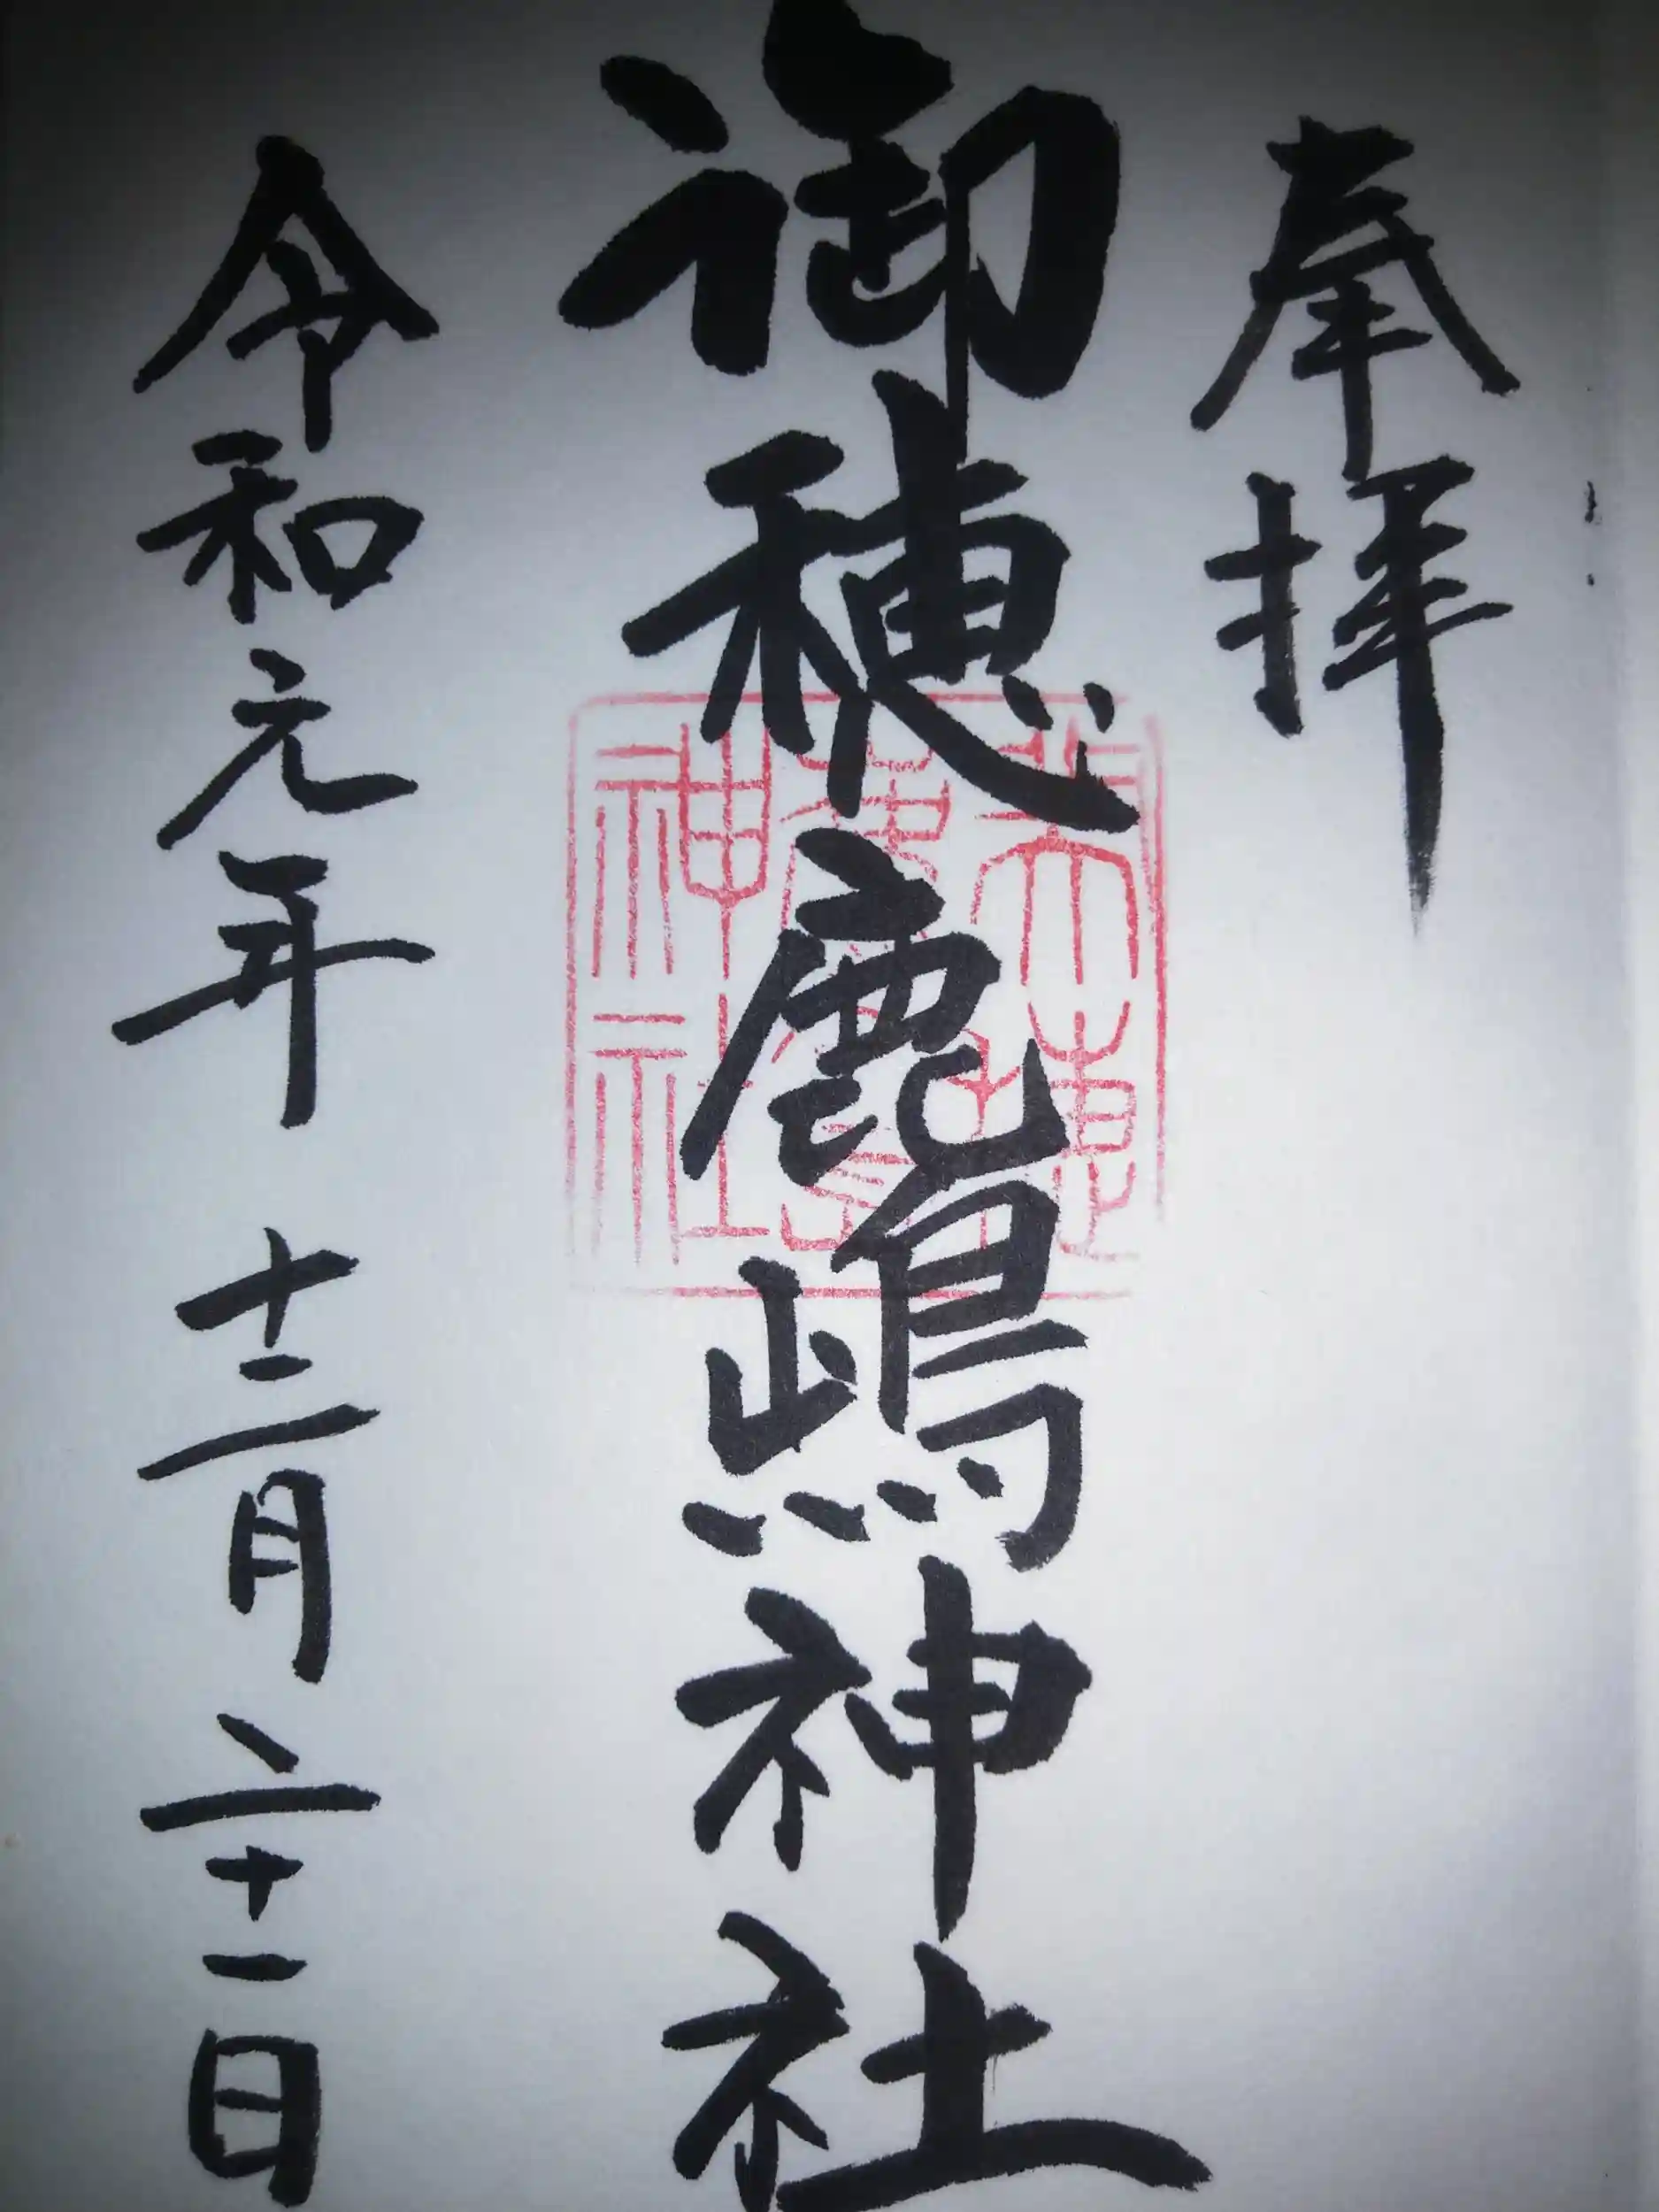 奉拝
御穂鹿嶋神社
神社
令和元年 十二月 二十一日